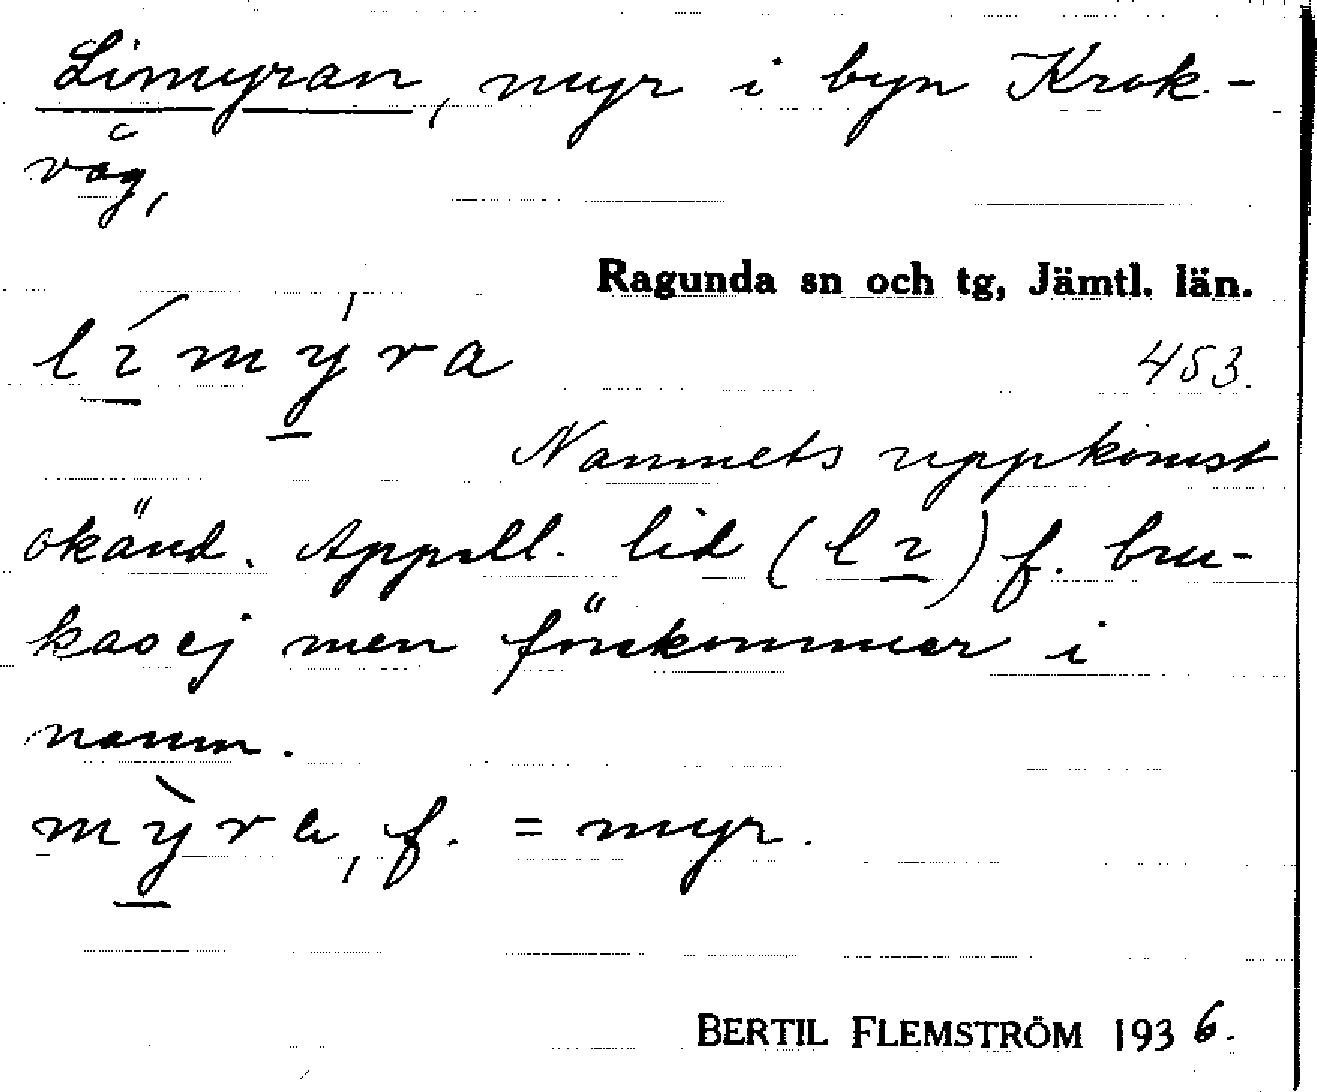 Limyran, myr i byn Krok-
våg,
Ragunda sn och tg, Jämtl. län.
lı́mýra
453.
Namnets uppkomst
okänd. Appell. lid (lı) f. bru-
kas ej men förekommer i
namn.
mỳra, f. = myr.
BERTIL FLEMSTRÖM 1936.